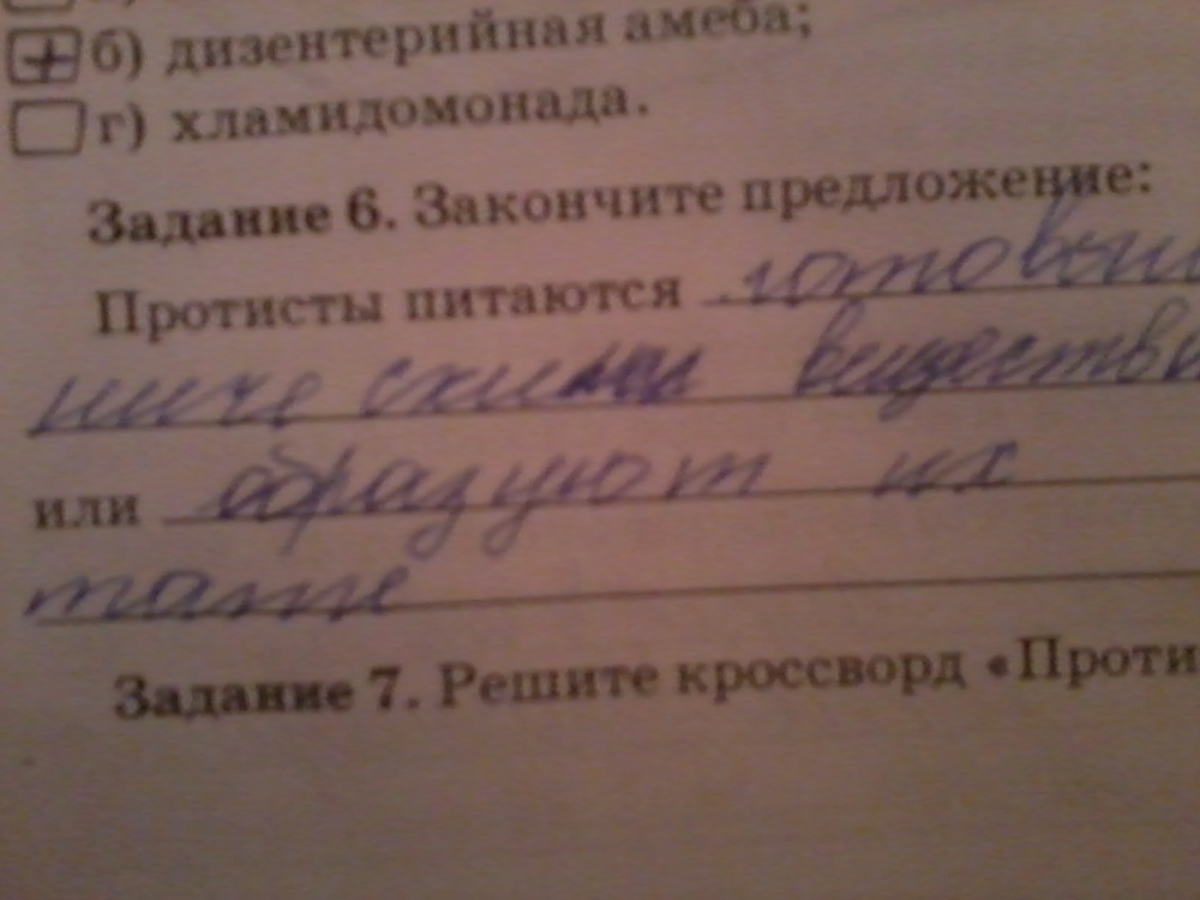 б) дизентерийная амеба;
г) хламидомонада.
Задание 6. Закончите предложение:
Протисты питаются готовым
ническими веществ
или образуют их
тате
Задание 7. Решите кроссворд «Проти